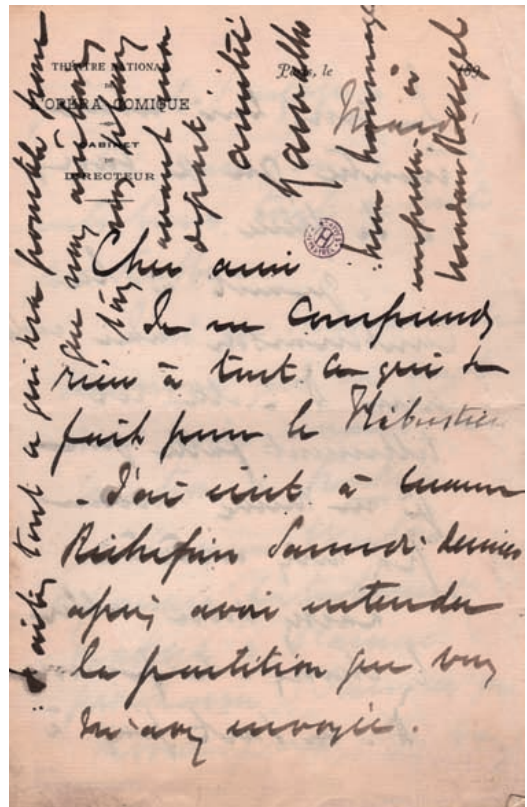 THÉÂTRE NATIONAL
DE
L'OPÉRA-COMIQUE
CABINET
DU
DIRECTEUR
Paris, le 189
Mardi
Cher ami
Je ne comprends
rien à tout ce qui se
fait pour le Flibustier
- J'ai écrit à
Richepin Samedi dernier
après avoir entendu
la partition que vous
m'avez envoyée.
Faites tout ce qui sera possible pour
que nous
avant mon
départ
amitié
Carvalho
mon hommage
empressé à
Madame Heugel